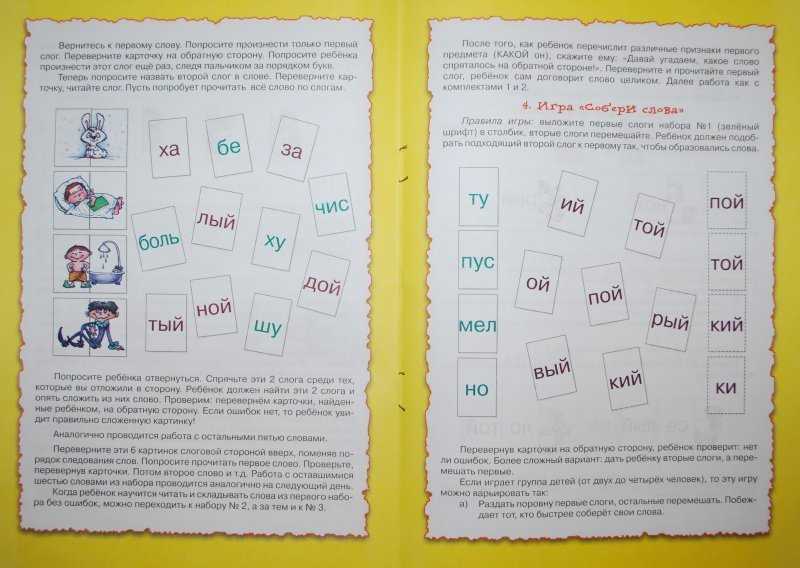 Вернитесь к первому слову. Попросите произнести только первый
слог. Переверните карточку на обратную сторону. Попросите ребёнка
произнести этот слог ещё раз, следя пальчиком за порядком букв.
Теперь попросите назвать второй слог в слове. Переверните кар-
точку, читайте слог. Пусть попробует прочитать всё слово по слогам.
ха
бе
за
чис
боль
лый
ху
дой
тый
ной
шу
Попросите ребёнка отвернуться. Спрячьте эти 2 слога среди тех,
которые вы отложили в сторону. Ребёнок должен найти эти 2 слога и
опять сложить из них слово. Проверим: перевернём карточки, найден-
ные ребёнком, на обратную сторону. Если ошибок нет, то ребёнок уви-
дит правильно сложенную картинку!
Аналогично проводится работа с остальными пятью словами.
Переверните эти 6 картинок слоговой стороной вверх, поменяв по-
рядок следования слов. Попросите прочитать первое слово. Проверьте,
перевернув карточки. Потом второе слово и т.д. Работа с оставшимися
шестью словами из набора проводится аналогично на следующий день.
Когда ребёнок научится читать и складывать слова из первого набо-
ра без ошибок, можно переходить к набору № 2, а за тем и к № 3.
После того, как ребенок перечислит различные признаки первого
предмета (КАКОЙ он), скажите ему: «Давай угадаем, какое слово
спряталось на обратной стороне!». Переверните и прочитайте первый
слог, ребёнок сам договорит слово целиком. Далее работа как с
комплектами 1 и 2.
4. Игра «Собери слова»
Правила игры: выложите первые слоги набора №1 (зелёный
шрифт) в столбик, вторые слоги перемешайте. Ребёнок должен подоб-
рать подходящий второй слог к первому так, чтобы образовались слова.
ту
ий
той
пой
пус
ой
пой
той
мел
рый
кий
но
вый
кий
ки
Перевернув карточки на обратную сторону, ребёнок проверит: нет
ли ошибок. Более сложный вариант: дать ребёнку вторые слоги, а пере-
мешать первые.
Если играет группа детей (от двух до четырёх человек), то эту игру
можно варьировать так:
а) Раздать поровну первые слоги, остальные перемешать. Побеж-
дает тот, кто быстрее соберёт свои слова.